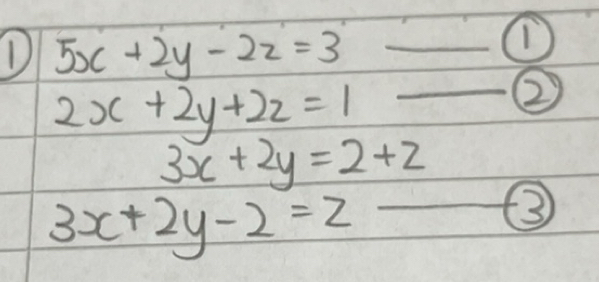 ① 5x + 2y - 2z = 3 —— ①
2x + 2y + 2z = 1 —— ②
3x + 2y = 2 + z
3x + 2y - 2 = z —— ③